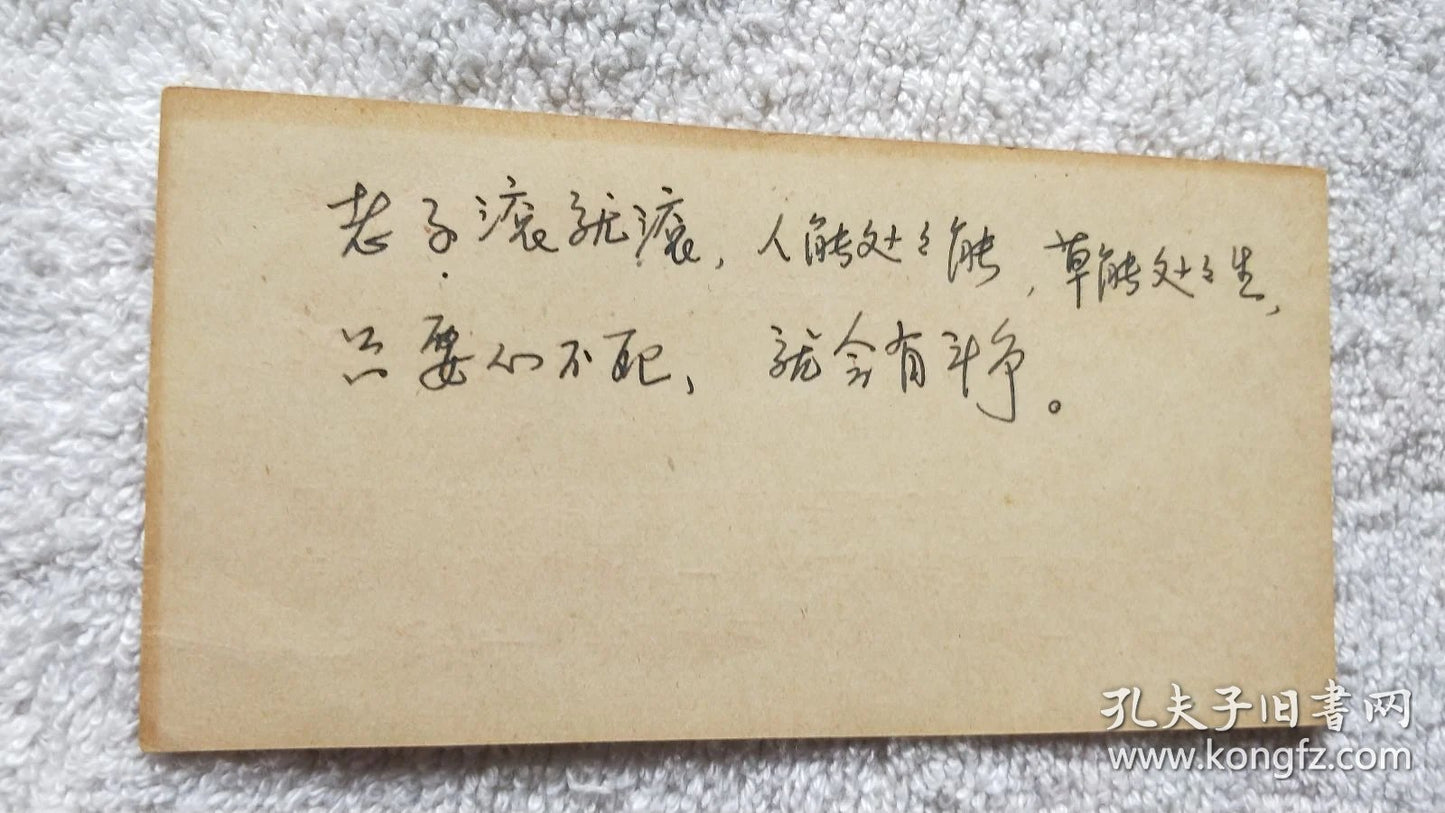 老子滚就滚，人能处处能，草能处处生，
只要心不死，就会有斗争。
孔夫子旧書网
www.kongfz.com